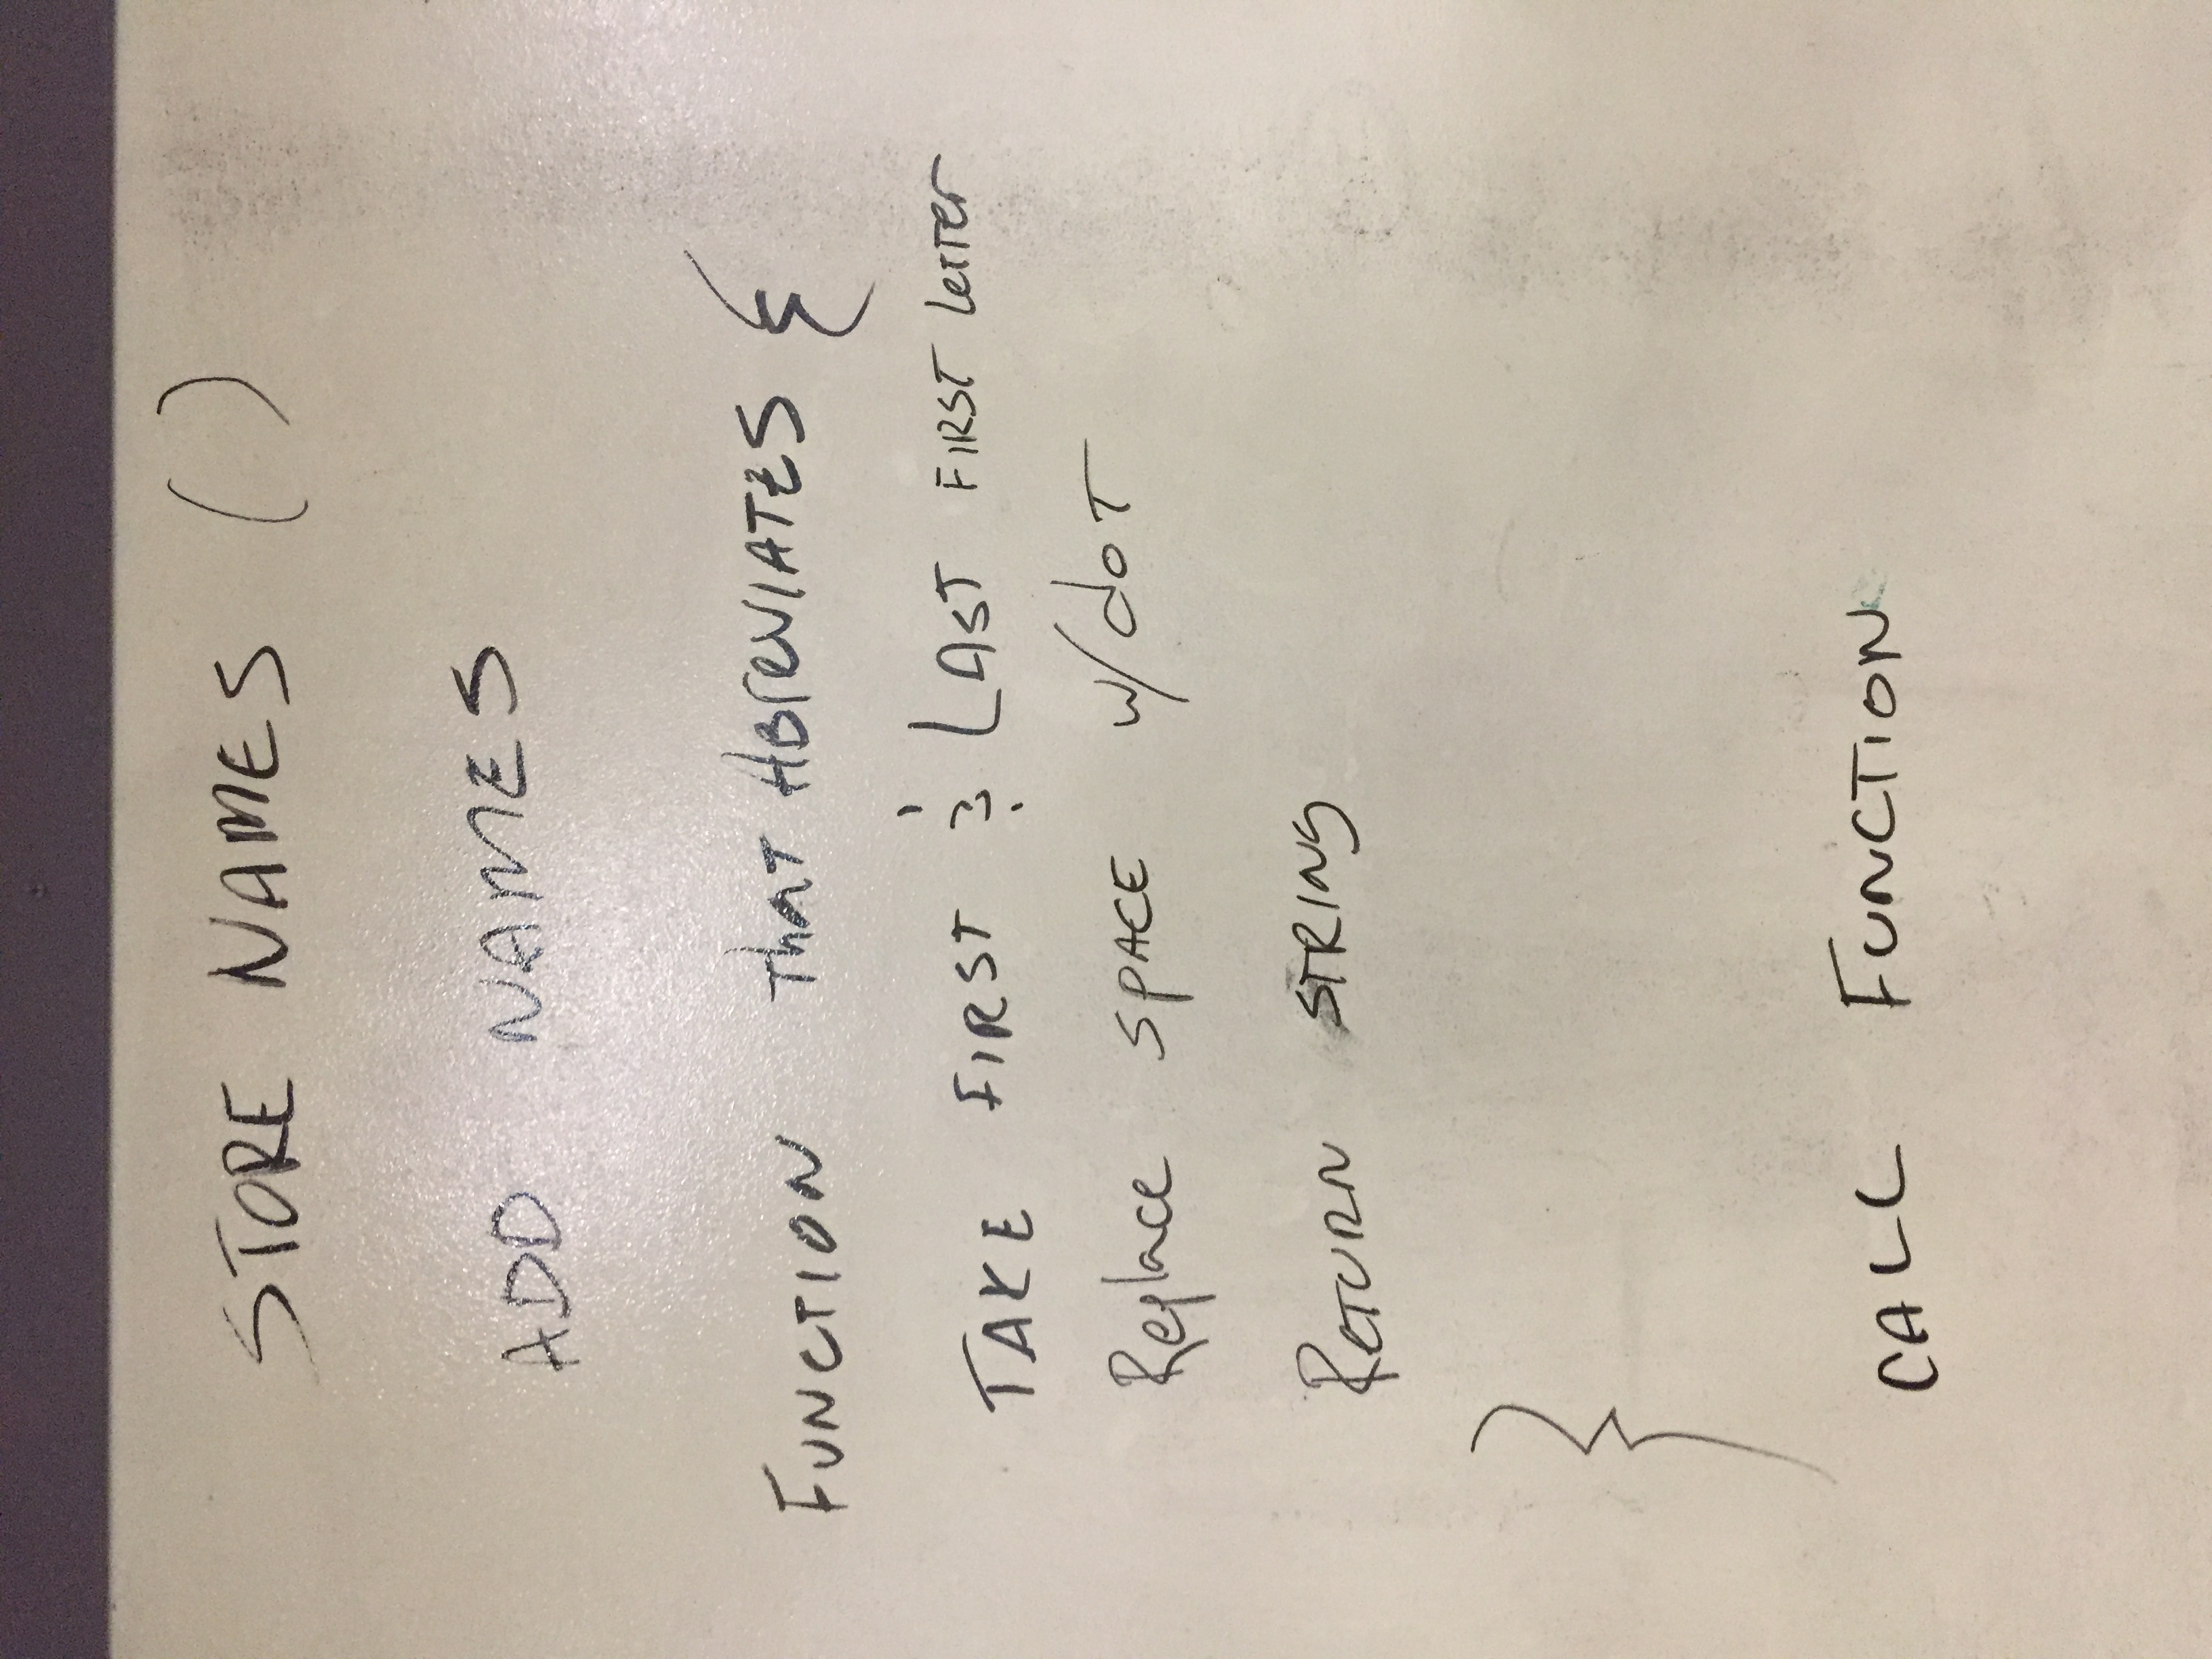 STORE NAMES ()
ADD NAMES
FUNCTION that ABrEVIATES {
TAKE FIRST & LAST FIRST Letter
Replace SPACE w/dOT
RETURN STRING
}
CALL FUNCTION